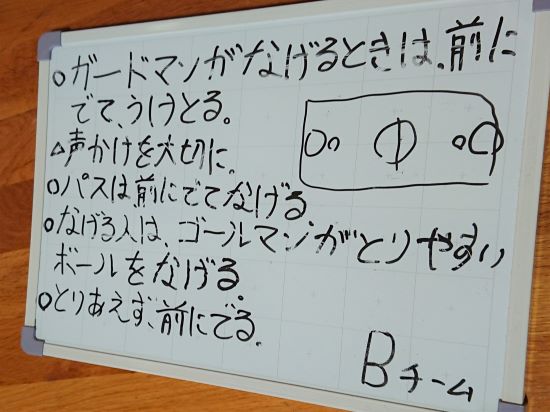 ○ガードマンがなげるときは、前に
でて、うけとる。
△声かけを大切に。
○パスは前にでてなげる
○なげる人は、ゴールマンがとりやすい
ボールをなげる。
○とりあえず、前にでる。
Bチーム